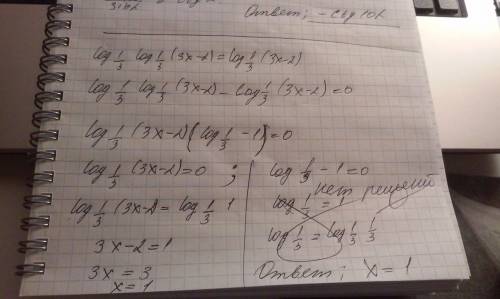 Ответ: - ctg 10α
log 1/3 log 1/3 (3x-2) = log 1/3 (3x-2)
log 1/3 log 1/3 (3x-2) - log 1/3 (3x-2) = 0
log 1/3 (3x-2) (log 1/3 - 1) = 0
log 1/3 (3x-2) = 0 ;
log 1/3 (3x-2) = log 1/3 1
3x-2=1
3x=3
x=1
log 1/3 - 1 = 0
нет решений
log 1/3 = 1
log 1/3 = log 1/3 1/3
Ответ: x=1